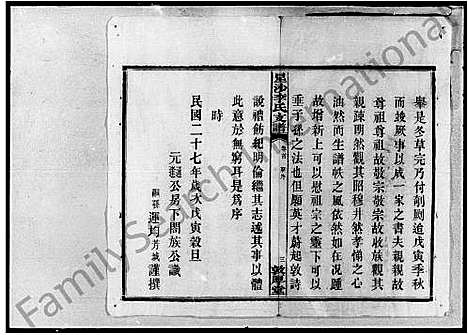 舉是冬草完乃付剞劂迨戊寅季秋
而竣厥事以成一家之書夫親親故
尊祖尊祖故敬宗敬宗故收族觀其
親疎明然觀其昭穆井然孝悌之心
油然而生譜帙之風依然如在况踵
故增新上可以慰祖宗之靈下可以
垂子孫之法也但願英才蔚起敦詩
星沙李氏支譜
卷首
序
三
敦厚堂
說禮飭紀明倫繼其志述其事以體
此意於無窮耳是爲序
時
民國二十七年歲次戊寅穀旦
元公房下閤族公議
嗣孫運均芳城謹撰
FamilySearch International